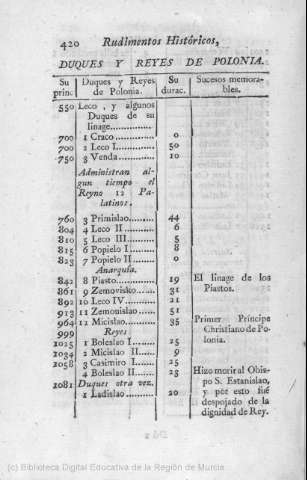 420 Rudimentos Históricos,
DUQUES Y REYES DE POLONIA.
Su princ. Duques y Reyes de Polonia. Su durac. Sucesos memorables.
550 Leco, y algunos
Duques de su
linage..............
700 1 Craco............ 0
700 2 Leco I........... 50
750 3 Venda........... 10
Administran al-
gun tiempo el
Reyno 12 Pa-
latinos.
760 3 Primislao........ 44
804 4 Leco II.......... 6
810 5 Leco III......... 5
815 6 Popielo I........ 8
823 7 Popielo II....... 0
Anarquía.
842 8 Piasto........... 19 El linage de los
Piastos.
861 9 Zemovisko...... 31
892 10 Leco IV......... 21
913 11 Zemomislao..... 51
964 12 Micislao......... 35 Primer Príncipe
Christiano de Po-
lonia.
999 Reyes
1025 1 Boleslao I....... 25
1034 2 Micislao II...... 9
1058 3 Casimiro I....... 25
4 Boleslao II...... 23 Hizo morir al Obis-
po S. Estanislao,
y por esto fué
despojado de la
dignidad de Rey.
1081 Duques otra vez.
1 Ladislao......... 20
(c) Biblioteca Digital Educativa de la Región de Murcia